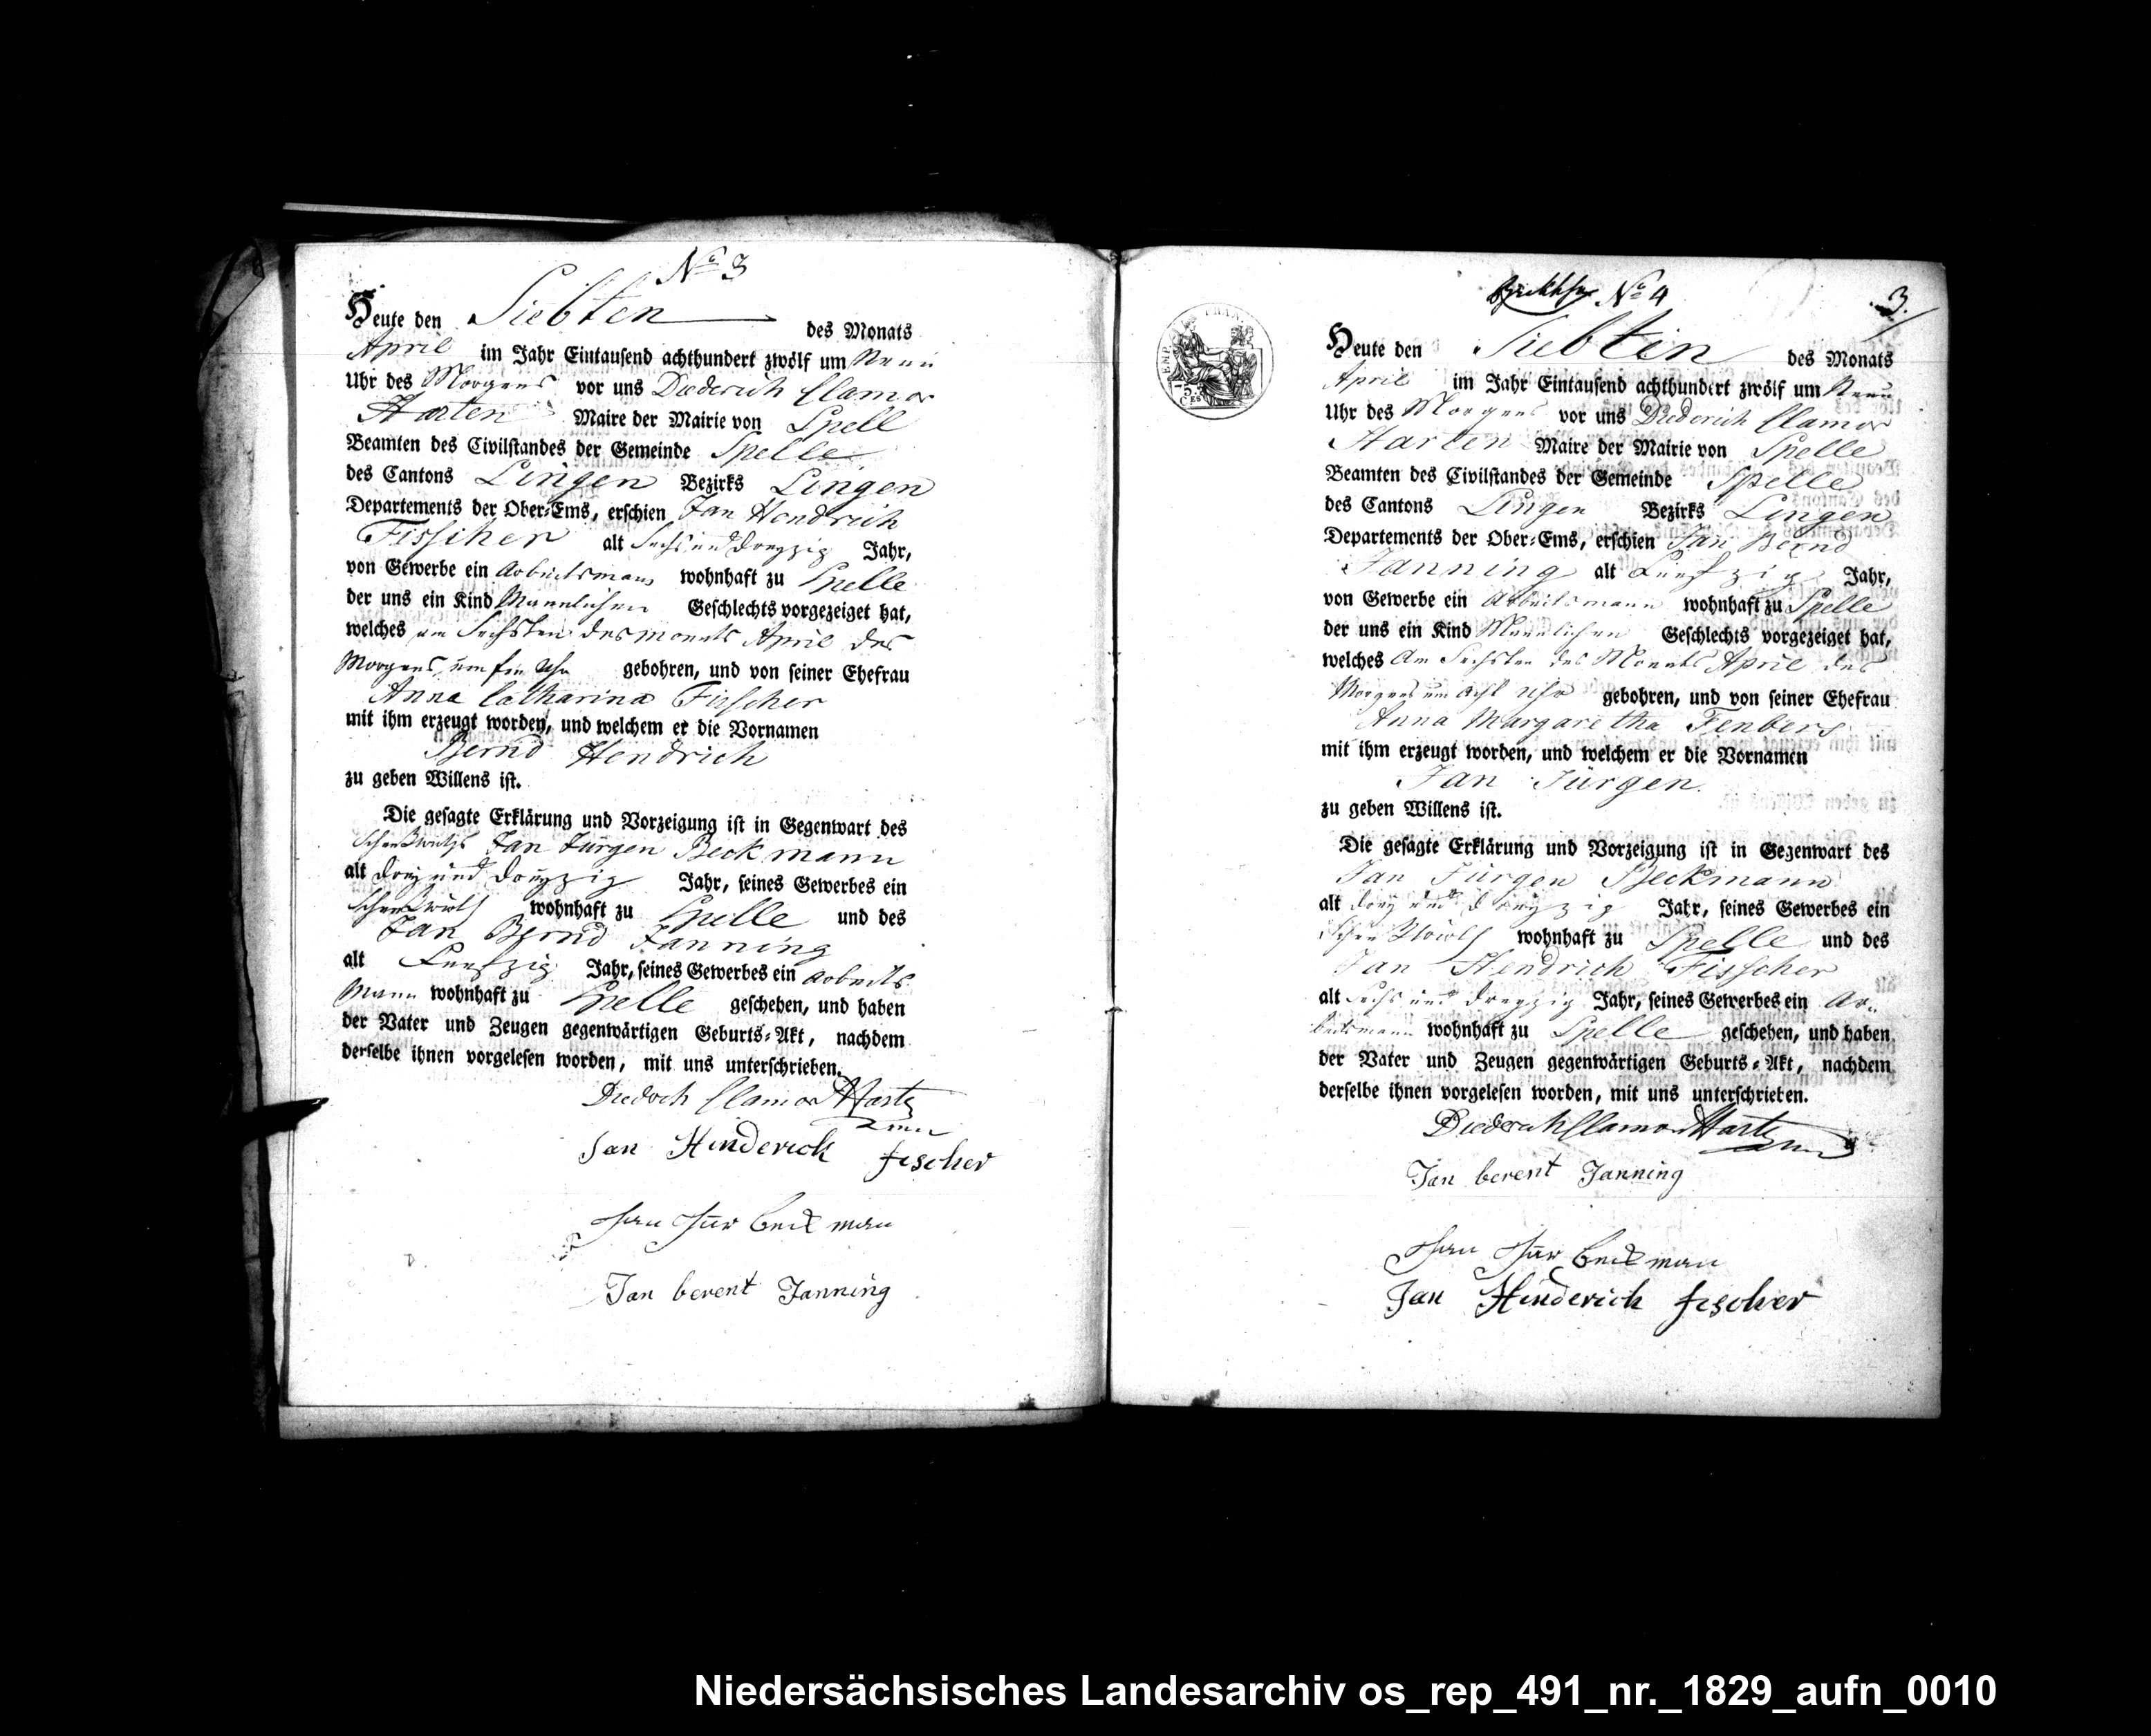 No 3
Heute den Siebten des Monats
April im Jahr Eintausend achthundert zwölf um Neun
Uhr des Morgens vor uns Diederich Clamor
Harten Maire der Mairie von Spell
Beamten des Civilstandes der Gemeinde Spelle
des Cantons Lingen Bezirks Lingen
Departements der Ober-Ems, erschien Jan Hendrich
Fisscher alt Sechs und dreyzig Jahr,
von Gewerbe ein Arbeitsmann wohnhaft zu Spelle
der uns ein Kind Mannlichen Geschlechts vorgezeiget hat,
welches am Sechsten des monats April des
Morgens um Uhr gebohren, und von seiner Ehefrau
Anna Catharina Fisscher
mit ihm erzeugt worden, und welchem er die Vornamen
Bernd Hendrich
zu geben Willens ist.
Die gesagte Erklärung und Vorzeigung ist in Gegenwart des
Jan Jürgen Beckmann
alt drey und dreyzig Jahr, seines Gewerbes ein
wohnhaft zu Spelle und des
Jan Bernd Janning
alt Funfzig Jahr, seines Gewerbes ein Arbeits
Mann wohnhaft zu Spelle geschehen, und haben
der Vater und Zeugen gegenwärtigen Geburts-Akt, nachdem
derselbe ihnen vorgelesen worden, mit uns unterschrieben.
Diedrich Clamor Harten
Jan Hinderick fischer
Jan Jür beckman
Jan berent Janning
No 4
3.
EMP. FRAN.
Heute den Siebten des Monats
April im Jahr Eintausend achthundert zwölf um Neun
Uhr des Morgens vor uns Diederich Clamor
Harten Maire der Mairie von Spelle
Beamten des Civilstandes der Gemeinde Spelle
des Cantons Lingen Bezirks Lingen
Departements der Ober-Ems, erschien Jan Bernd
Janning alt Funfzig Jahr,
von Gewerbe ein Arbeitsmann wohnhaft zu Spelle
der uns ein Kind Mannlichen Geschlechts vorgezeiget hat,
welches Am Sechsten des Monats April des
Morgens um acht Uhr gebohren, und von seiner Ehefrau
Anna Margaretha Fenbers
mit ihm erzeugt worden, und welchem er die Vornamen
Jan Jürgen
zu geben Willens ist.
Die gesagte Erklärung und Vorzeigung ist in Gegenwart des
Jan Jürgen Beckmann
alt drey und dreyzig Jahr, seines Gewerbes ein
wohnhaft zu Spelle und des
Jan Hendrich Fisscher
alt Sechs und dreyzig Jahr, seines Gewerbes ein Ar-
beitsmann wohnhaft zu Spelle geschehen, und haben
der Vater und Zeugen gegenwärtigen Geburts-Akt, nachdem
derselbe ihnen vorgelesen worden, mit uns unterschrieben.
Diederich Clamor Harten
Jan berent Janning
Jan Jür beckman
Jan Hinderich fischer
Niedersächsisches Landesarchiv os_rep_491_nr._1829_aufn_0010